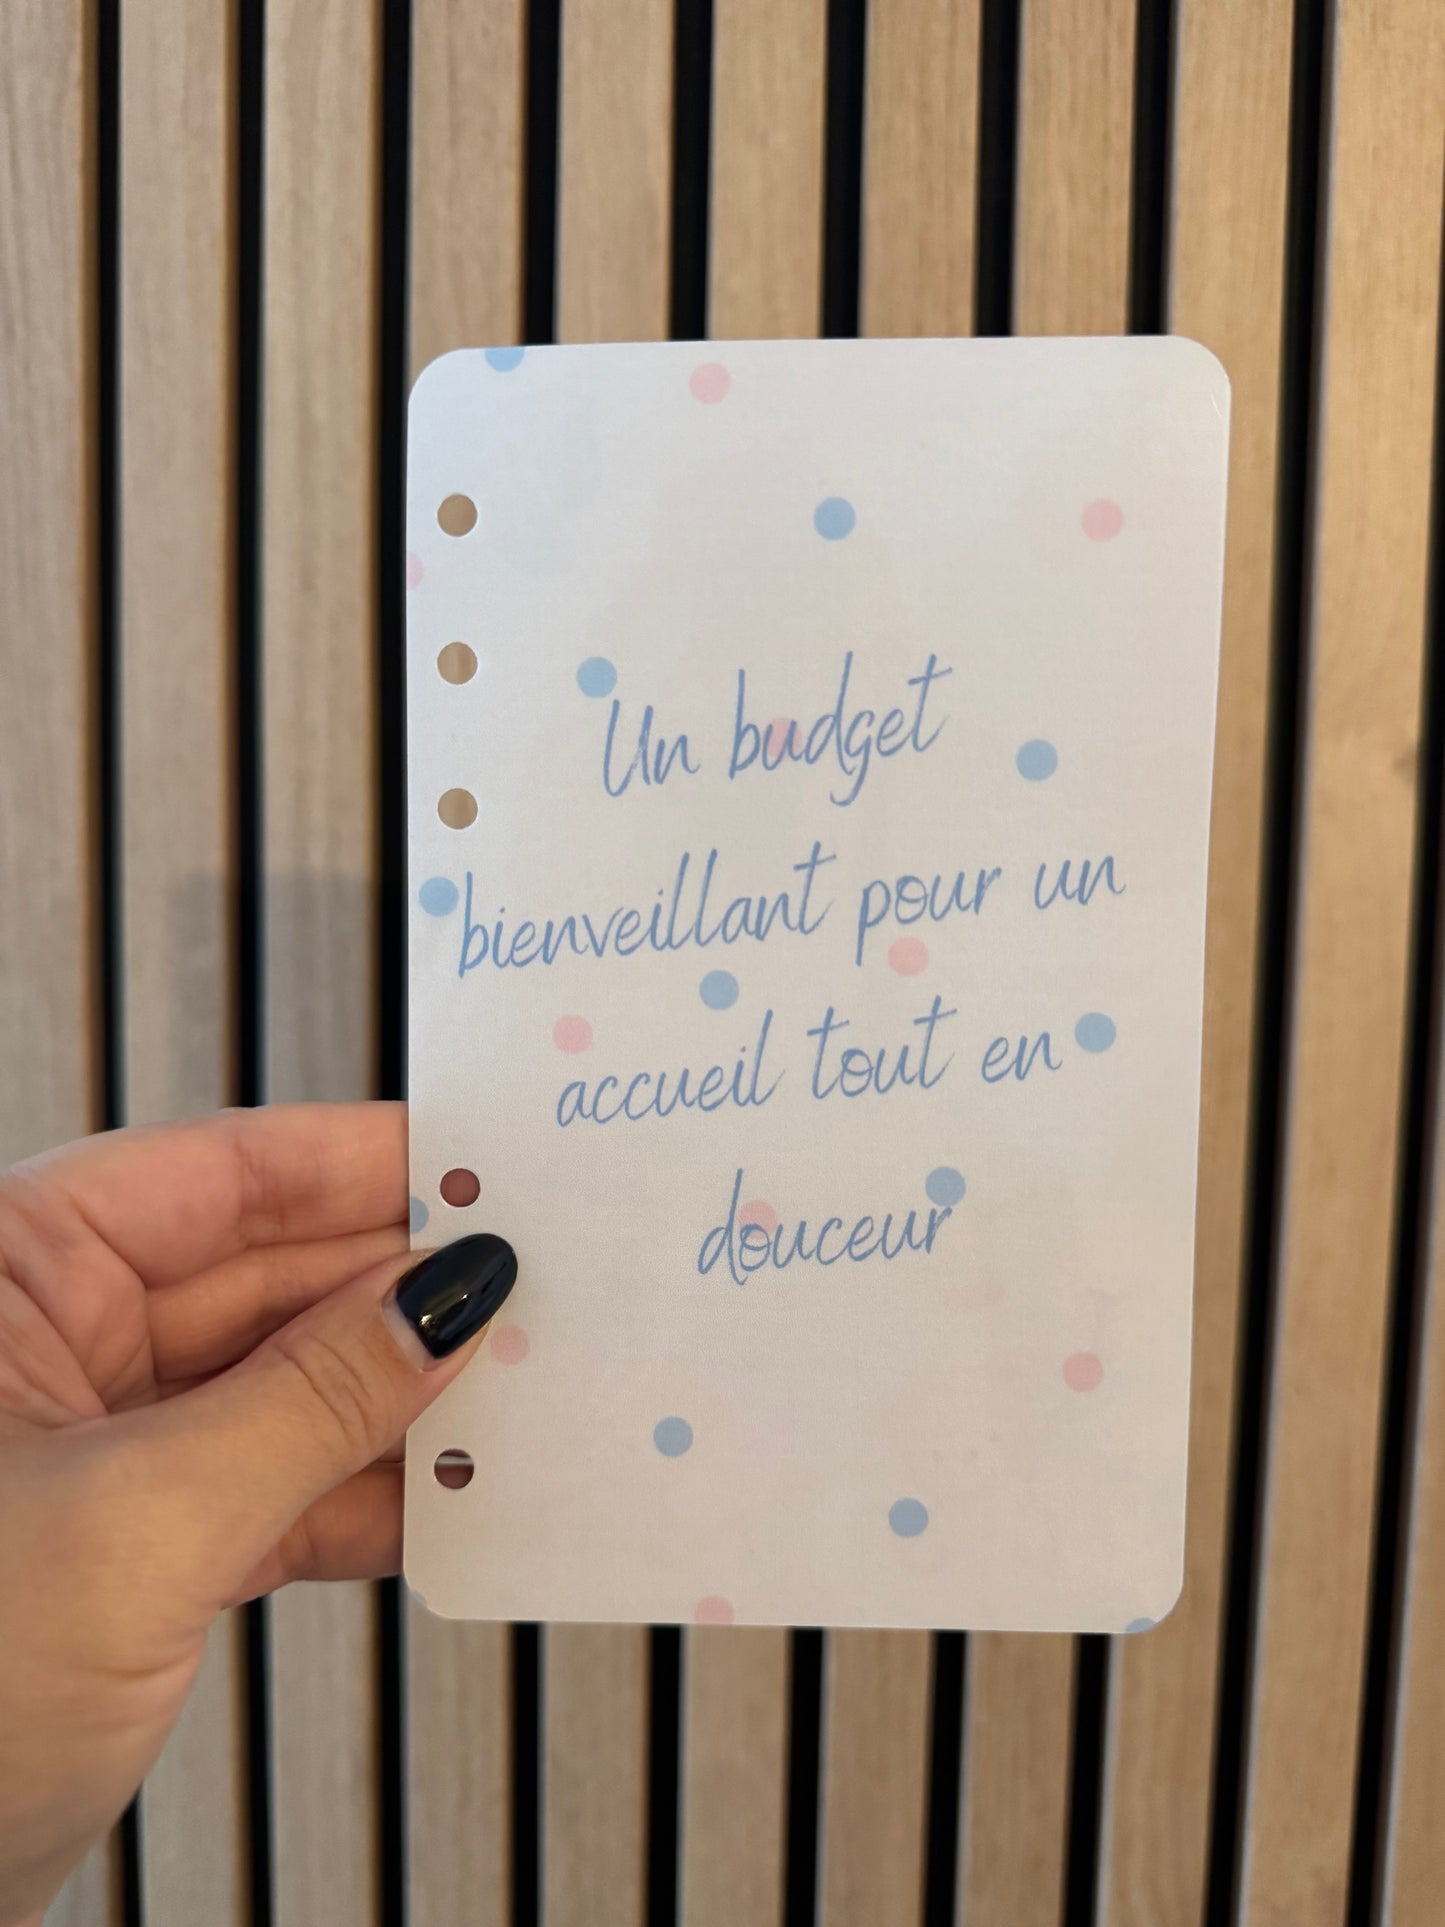 Un budget
bienveillant pour un
accueil tout en
douceur